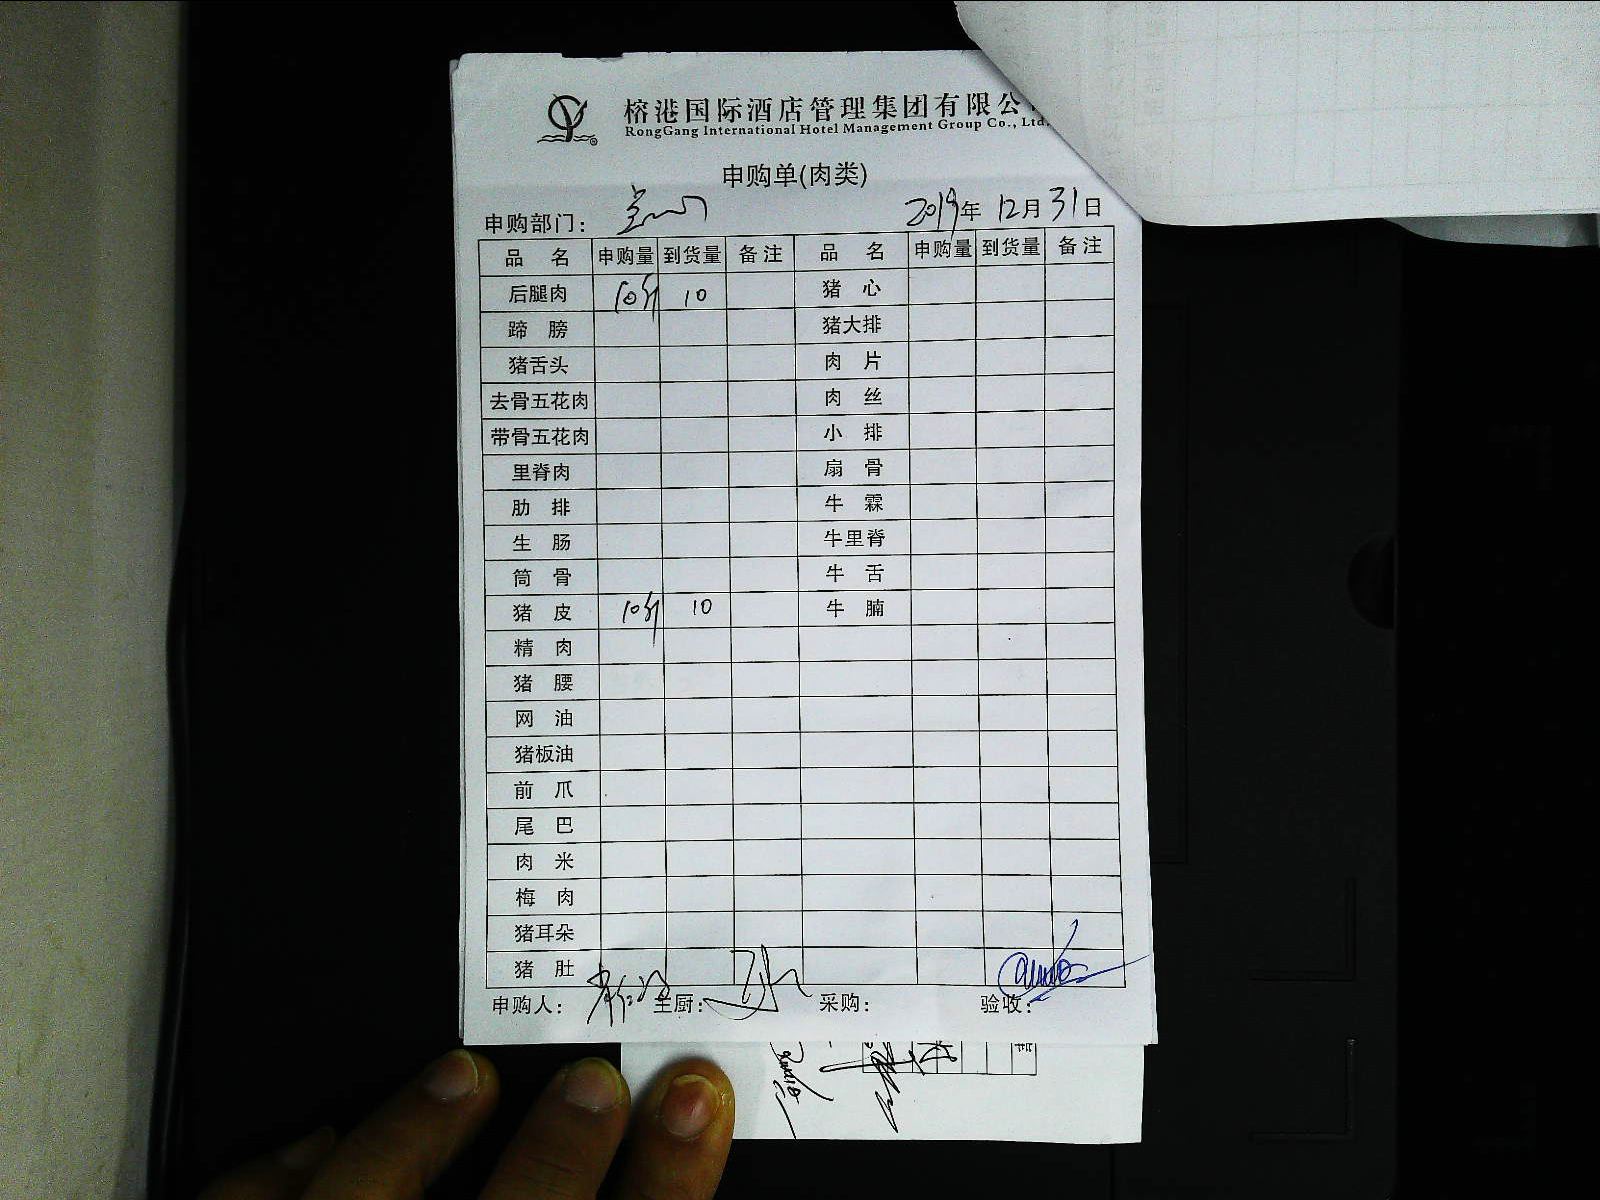 榕港国际酒店管理集团有限公
RongGang International Hotel Management Group Co., Ltd.
申购单(肉类)
申购部门： 2019年 12月 31日
品 名 申购量 到货量 备注 品 名 申购量 到货量 备注
后腿肉 10斤 10 猪 心
蹄 膀 猪大排
猪舌头 肉 片
去骨五花肉 肉 丝
带骨五花肉 小 排
里脊肉 扇 骨
肋 排 牛 霖
生 肠 牛里脊
筒 骨 牛 舌
猪 皮 10斤 10 牛 腩
精 肉
猪 腰
网 油
猪板油
前 爪
尾 巴
肉 米
梅 肉
猪耳朵
猪 肚
申购人： 主厨： 采购： 验收：